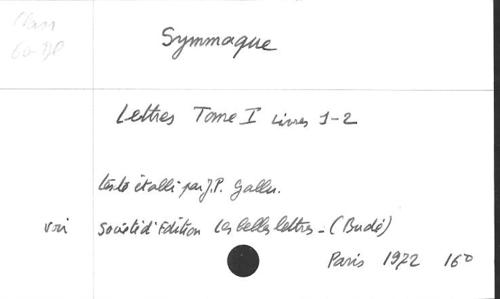 Class
Symmaque
Lettres Tome I Livres 1-2
texte établi par J.P. Gallu.
voir société d'Edition les belles lettres - (Budé)
Paris 1972 16°